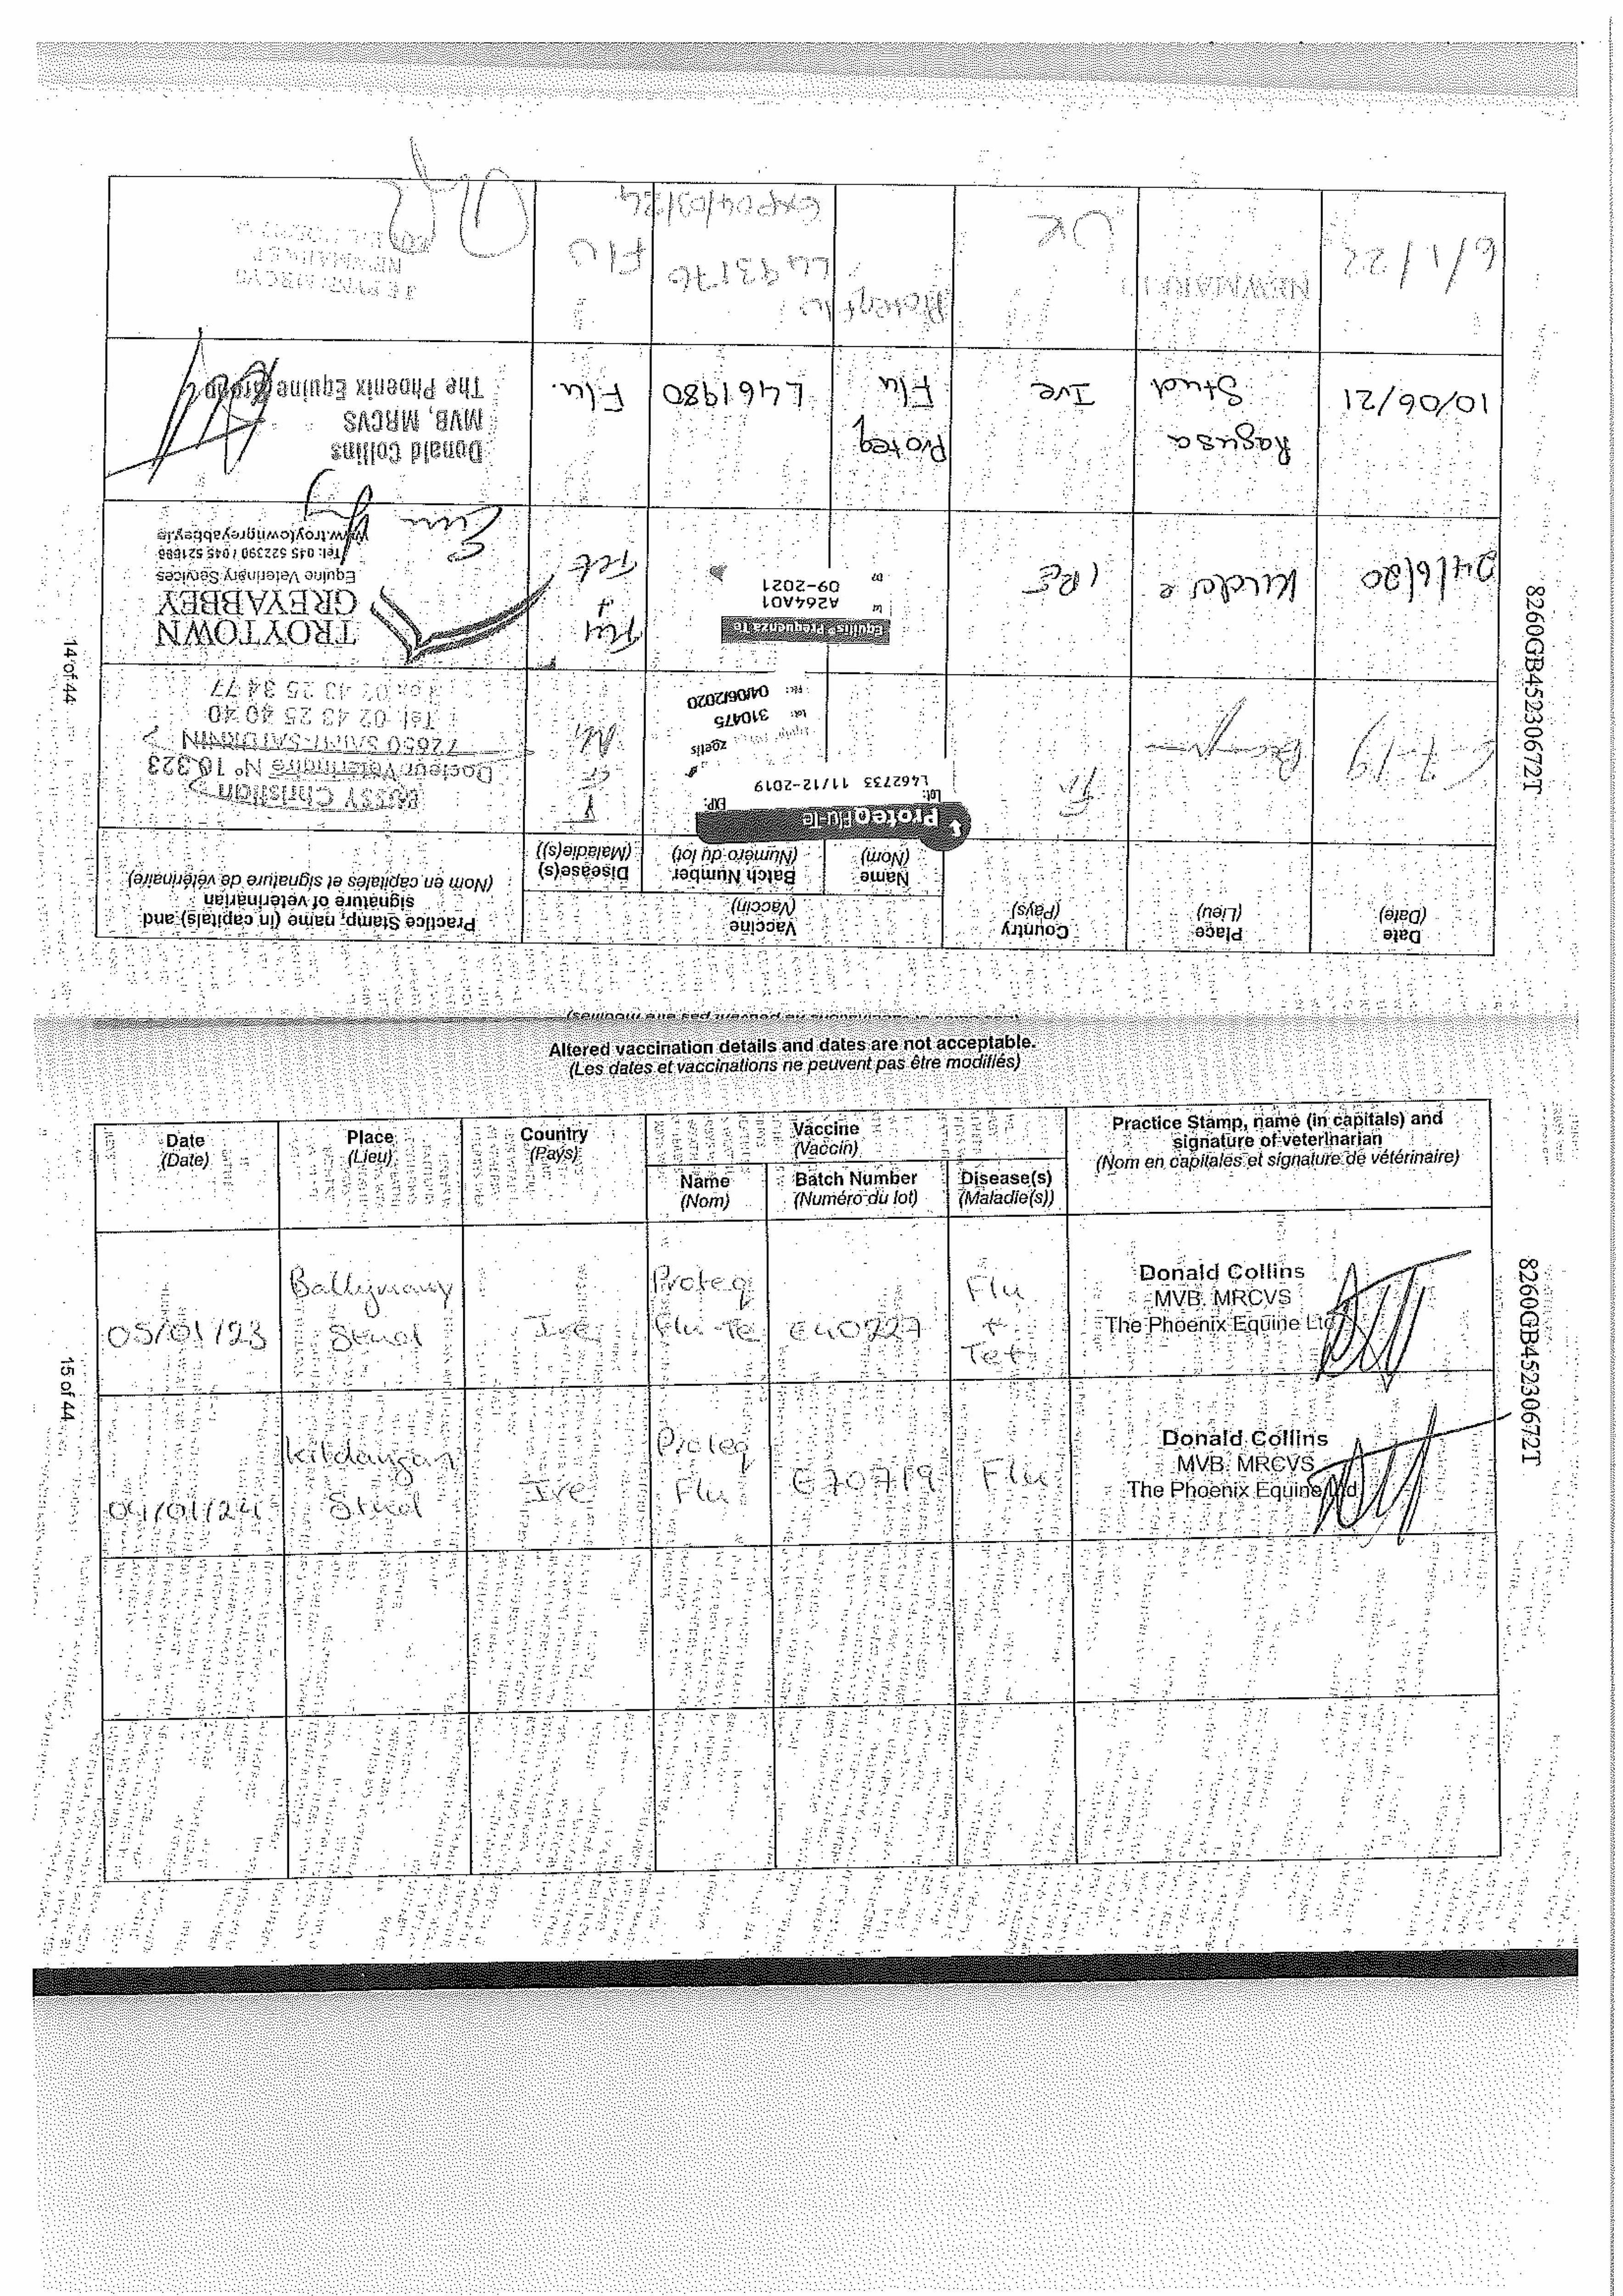 8260GB45230672T
14 of 44
Date
(Date)
Place
(Lieu)
Country
(Pays)
Vaccine
(Vaccin)
Name
(Nom)
Batch Number
(Numéro du lot)
Disease(s)
(Maladie(s))
Practice Stamp, name (in capitals) and
signature of veterinarian
(Nom en capitales et signature de vétérinaire)
ProteqFlu-Te
Lot: EXP:
L462733 11/12-2019
zoetis
310475
04/06/2020
Christian
Docteur Vétérinaire N° 16 323
72650 SAINT-SATURNIN
Tél. 02 43 25 40 40
02 43 25 34 77
24/6/20
Kildare
IRE
Equilis® Prequenza Te
A264A01
09-2021
Flu
Tet
TROYTOWN
GREYABBEY
Equine Veterinary Services
Tel: 045 522390 / 045 521686
www.troytowngreyabbey.ie
10/06/21
Ragusa
Stud
Ire
Proteq
Flu
L461980
Flu.
Donald Collins
MVB, MRCVS
The Phoenix Equine Group
6/1/22
NEWMARKET
UK
Proteqflu
L493176
EXP 04/03/24
Flu
NEWMARKET
(Les dates et vaccinations ne peuvent pas être modifiés)
Altered vaccination details and dates are not acceptable.
(Les dates et vaccinations ne peuvent pas être modifiés)
Date
(Date)
Place
(Lieu)
Country
(Pays)
Vaccine
(Vaccin)
Name
(Nom)
Batch Number
(Numéro du lot)
Disease(s)
(Maladie(s))
Practice Stamp, name (in capitals) and
signature of veterinarian
(Nom en capitales et signature de vétérinaire)
05/01/23
Ballymany
Stud
Ire
Proteq
Flu-Te
E40227
Flu
+
Tet
Donald Collins
MVB. MRCVS
The Phoenix Equine Ltd
04/01/24
Kildangan
Stud
Ire
Proteq
Flu
E70719
Flu
Donald Collins
MVB. MRCVS
The Phoenix Equine Ltd
15 of 44
8260GB45230672T